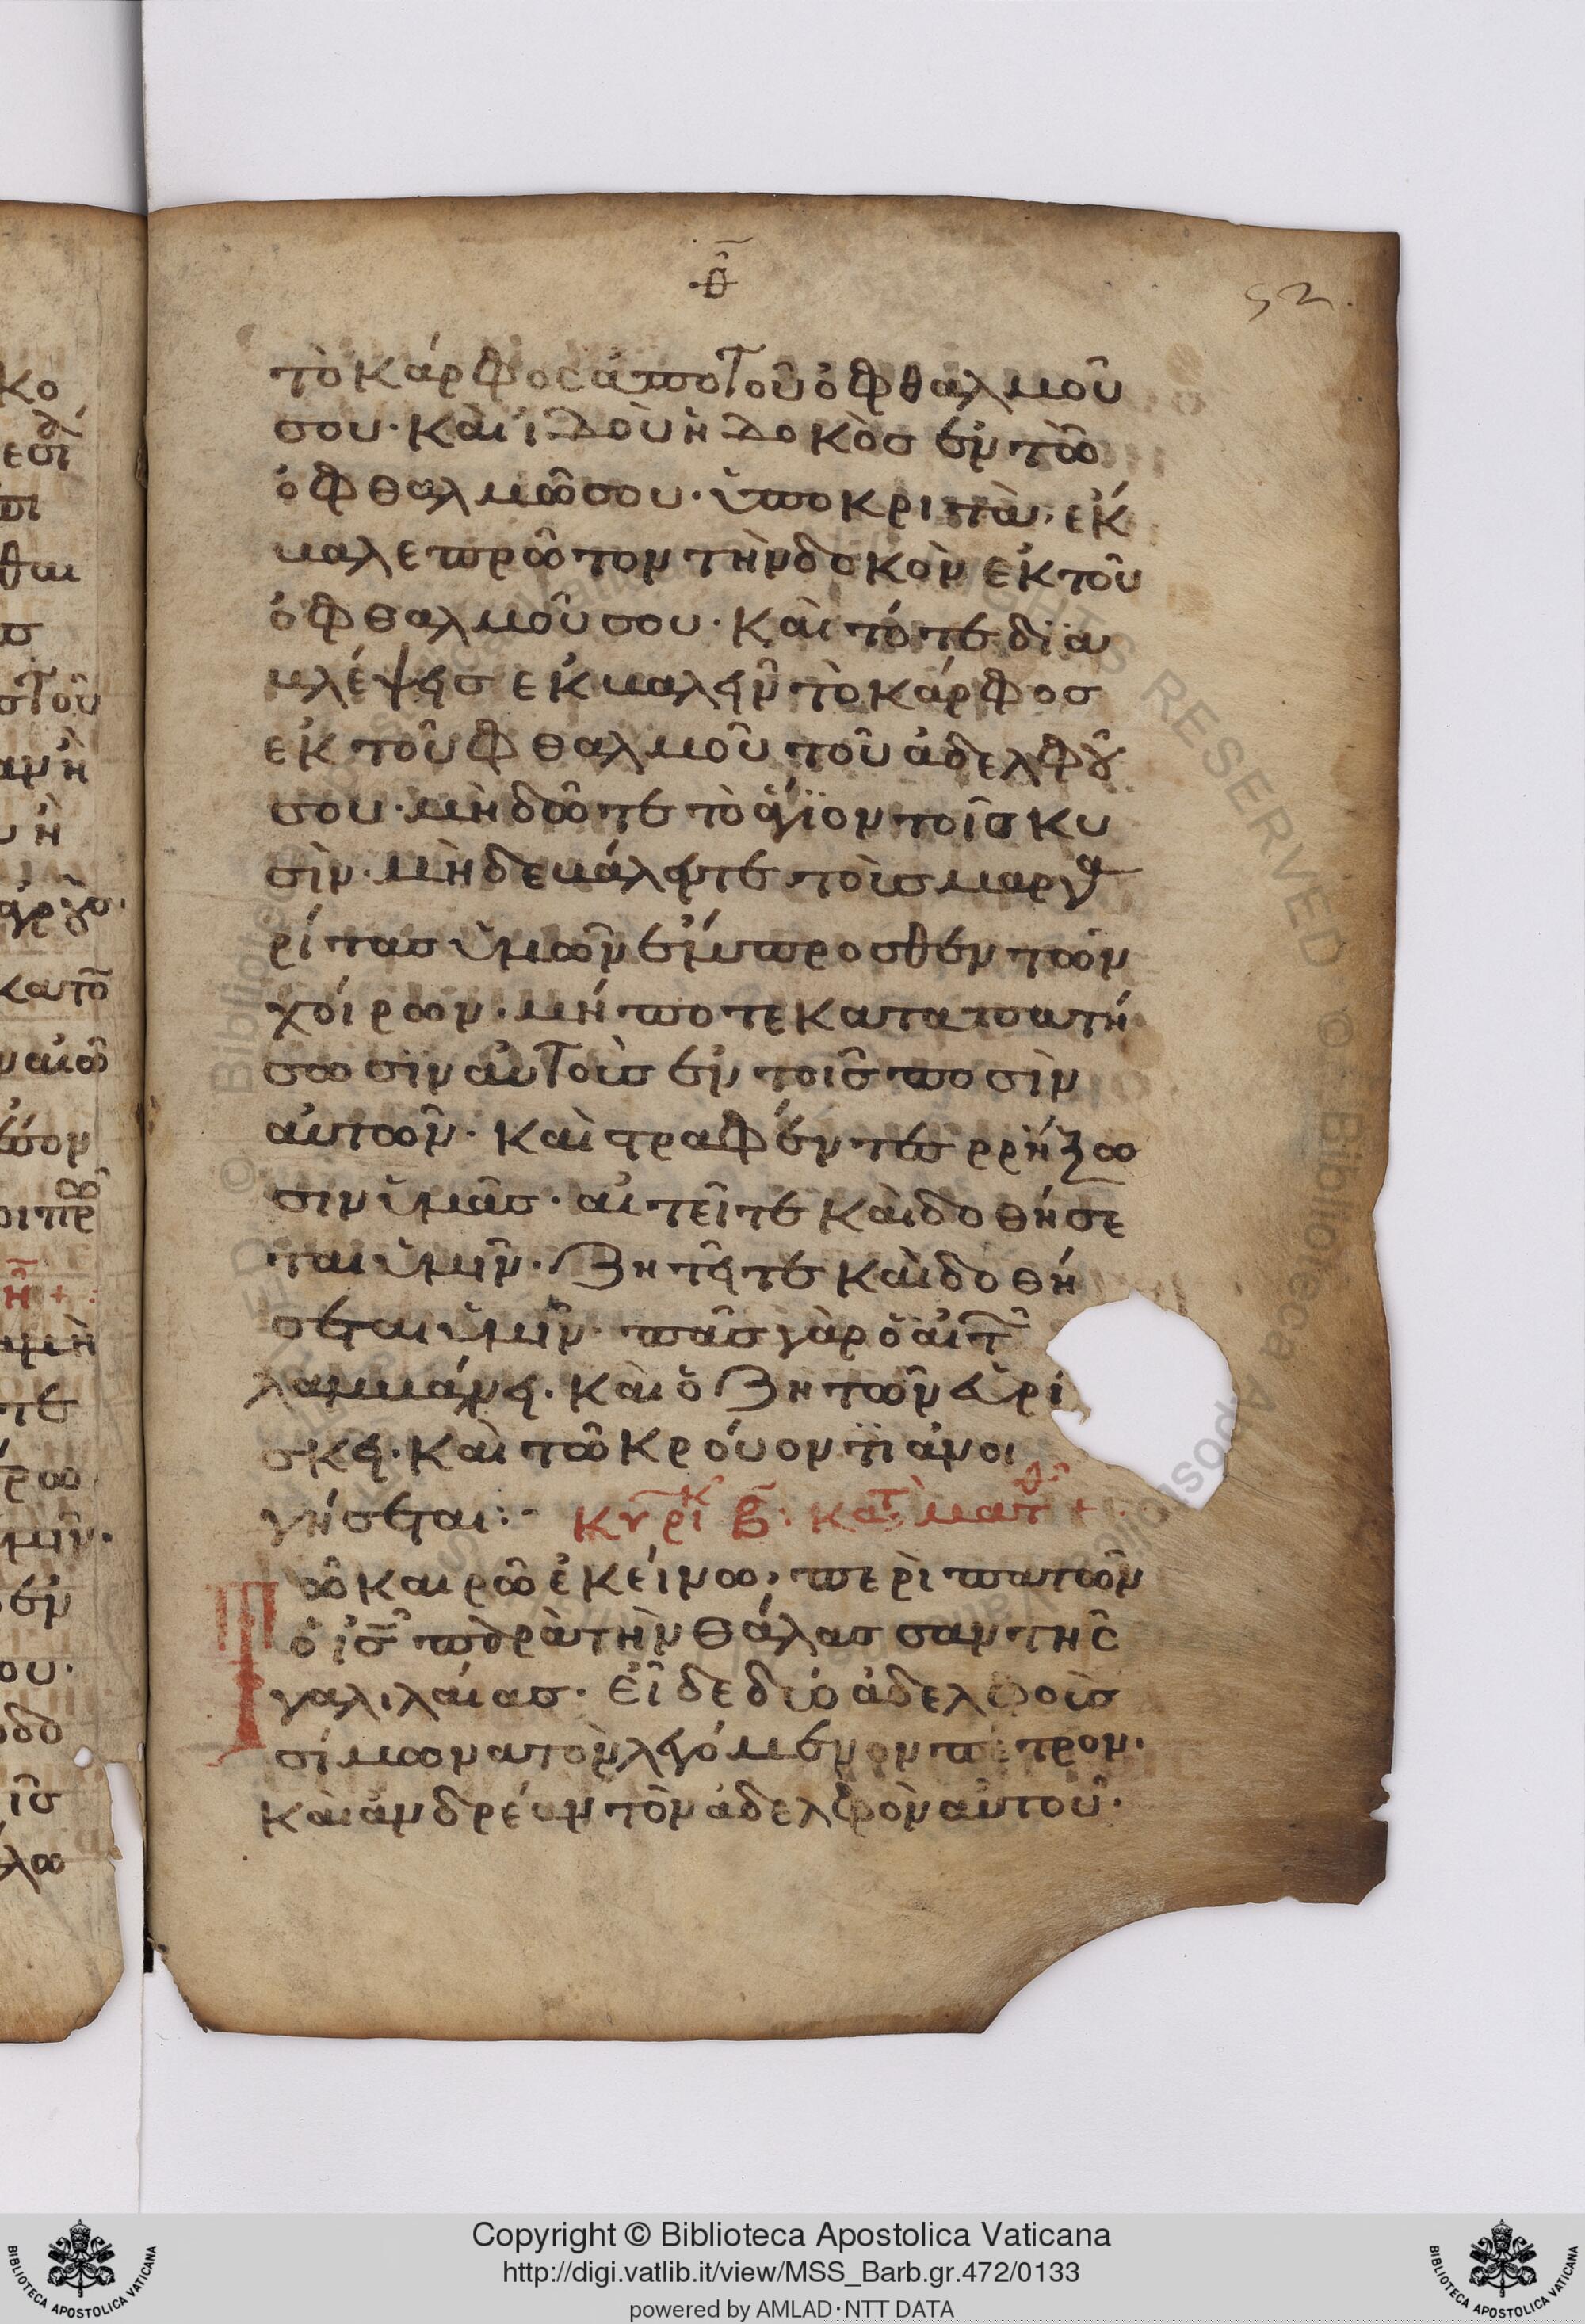 θ
52
τὸ κάρφος ἀποτοῦ ὀφθαλμοῦ
σου· καὶ ἰδοὺ ἡ δοκὸσ ἐν τῶ
ὀφθαλμῶ σου· ὑποκριτὰ· ἔκ
βαλε πρῶτον τὴν δοκὸν ἐκ τοῦ
ὀφθαλμοῦ σου· καὶ τότε δϊα
βλέψεισ ἐκβαλεῖν τὸ κάρφοσ
ἐκ τοῦ φθαλμοῦ τοῦ ἀδελφοῦ
σου· μὴ δῶτε τὸ ἅγϊον τοῖσ κυ
σὶν· μὴδε βάλειτε τοὺσ μαργα
ρίτασ ὑμῶν ἔμπροσθεν τῶν
χοίρων· μήποτε καταπατή
σωσϊν αὐτοὺσ ἐν τοῖσ ποσὶν
αὐτῶν· καὶ στραφέντεσ ρρήξω
σιν ὑμᾶσ· αἰτεῖτε καὶ δοθήσε
ται ὑμῖν· ζητεῖτε καὶ δοθή
σεται ὑμῖν· πᾶσ γὰρ ὁ αἰτ
λαμβάνει· καὶ ὁ ζητῶν εὑρί
σκει· καὶ τῶ κρούοντϊ ἀνοι
γήσεται:-  κυρικ β· κατ ματθ +
Τῶ καιρῶ ἐκείνω, περὶπατῶν
ὁ ισ παρὰ τὴν θάλασσαν τῆς
γαλιλαίασ· εἶδε δύο ἀδελφοὺσ
σίμωνα τὸν λεγόμενον πέτρον·
καὶ ἀνδρέαν τὸν ἀδελφὸν αὐτοῦ·
Copyright © Biblioteca Apostolica Vaticana
http://digi.vatlib.it/view/MSS_Barb.gr.472/0133
powered by AMLAD·NTT DATA
BIBLIOTECA APOSTOLICA VATICANA
BIBLIOTECA APOSTOLICA VATICANA